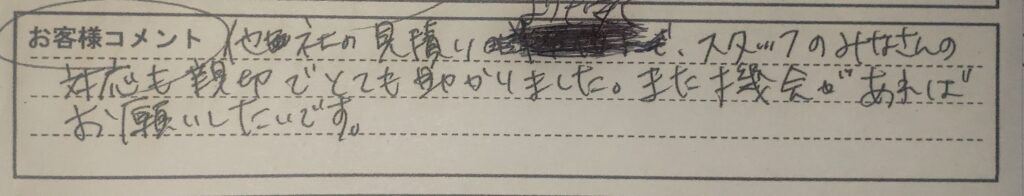 よりも安く
お客様コメント 他社の見積り 、スタッフのみなさんの
対応も親切でとても助かりました。また機会があれば
お願いしたいです。